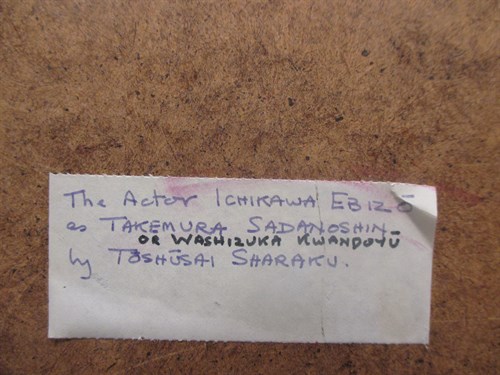 The Actor ICHIKAWA EBIZŌ
as TAKEMURA SADANOSHIN
OR WASHIZUKA KWANDOYŪ
by TŌSHŪSAI SHARAKU.